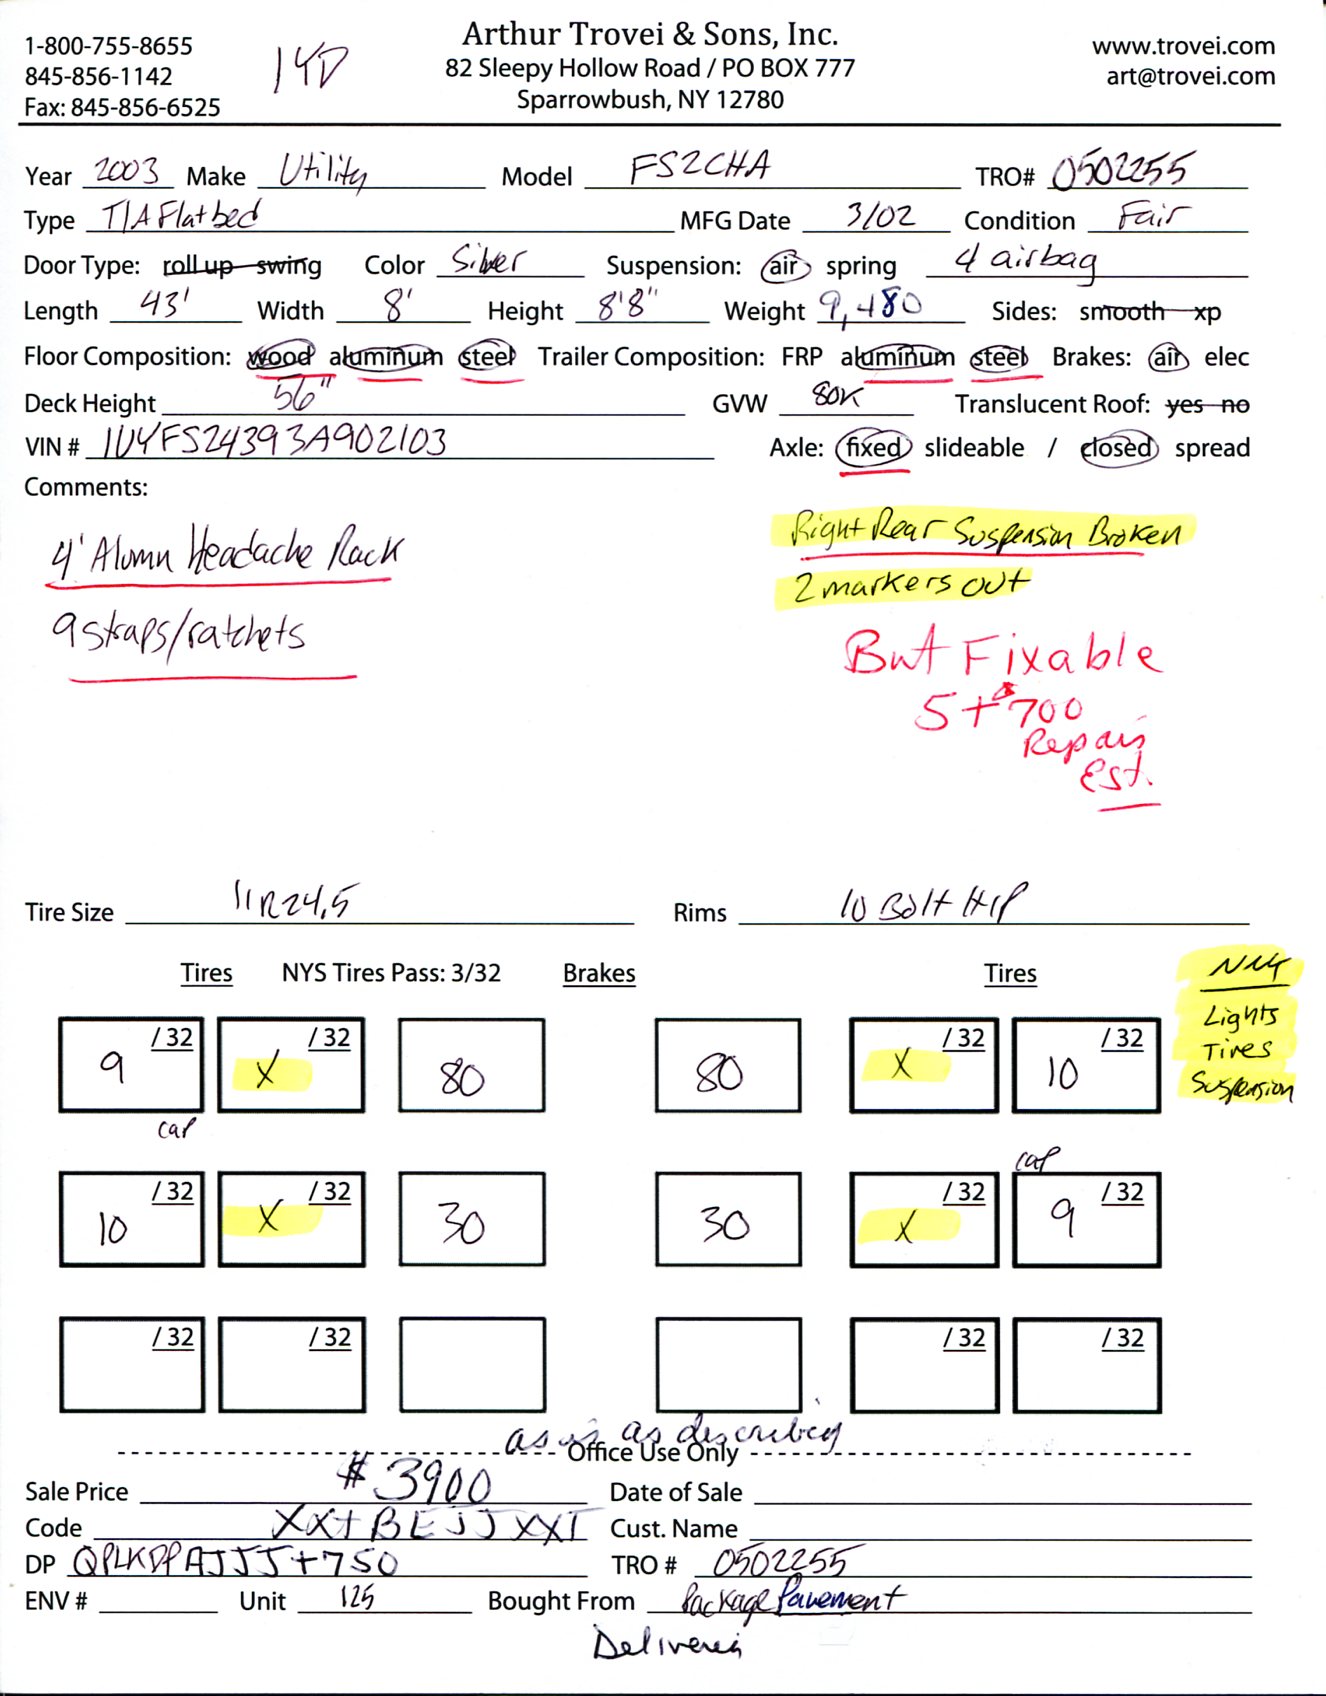 1-800-755-8655
845-856-1142
Fax: 845-856-6525
14D
Arthur Trovei & Sons, Inc.
82 Sleepy Hollow Road / PO BOX 777
Sparrowbush, NY 12780
www.trovei.com
art@trovei.com
Year 2003 Make Utility Model FS2CHA TRO# 0502255
Type T/A Flatbed MFG Date 3/02 Condition Fair
Door Type: roll up swing Color Silver Suspension: air spring 4 airbag
Length 43' Width 8' Height 8'8" Weight 9,480 Sides: smooth xp
Floor Composition: wood aluminum steel Trailer Composition: FRP aluminum steel Brakes: air elec
Deck Height 56" GVW 80K Translucent Roof: yes no
VIN # 1UYFS24393A902103 Axle: fixed slideable / closed spread
Comments:
4' Alumn Headache Rack
9 straps/ratchets
Right Rear Suspension Broken
2 markers out
But Fixable
5+$700
Repairs
Est.
Tire Size 11R24.5 Rims 10 Bolt H/P
Tires NYS Tires Pass: 3/32 Brakes Tires
Lights
Tires
Suspension
9 /32 X /32 80 80 X /32 10 /32
cap
cap
10 /32 X /32 30 30 X /32 9 /32
/32 /32 /32 /32
as is as describing
Office Use Only
Sale Price $3900 Date of Sale
Code XX+BEJJXXT Cust. Name
DP QPLKDPAJJJ+750 TRO # 0502255
ENV # Unit 125 Bought From Package Pavement